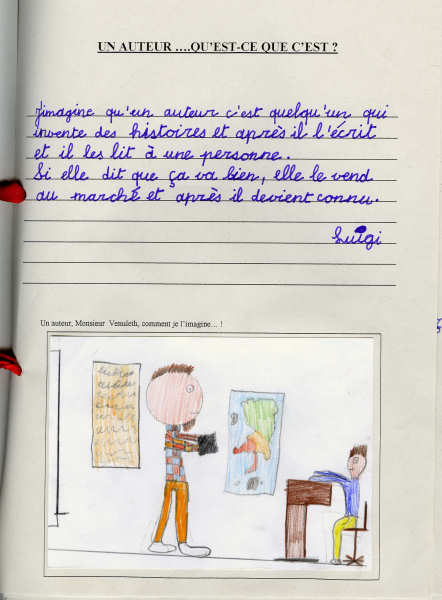 UN AUTEUR ....QU'EST-CE QUE C'EST ?
J'imagine qu'un auteur c'est quelqu'un qui
invente des histoires et après il l'écrit
et il les lit à une personne.
Si elle dit que ça va bien, elle le vend
au marché et après il devient connu.
Luigi
Un auteur, Monsieur Venuleth, comment je l'imagine... !